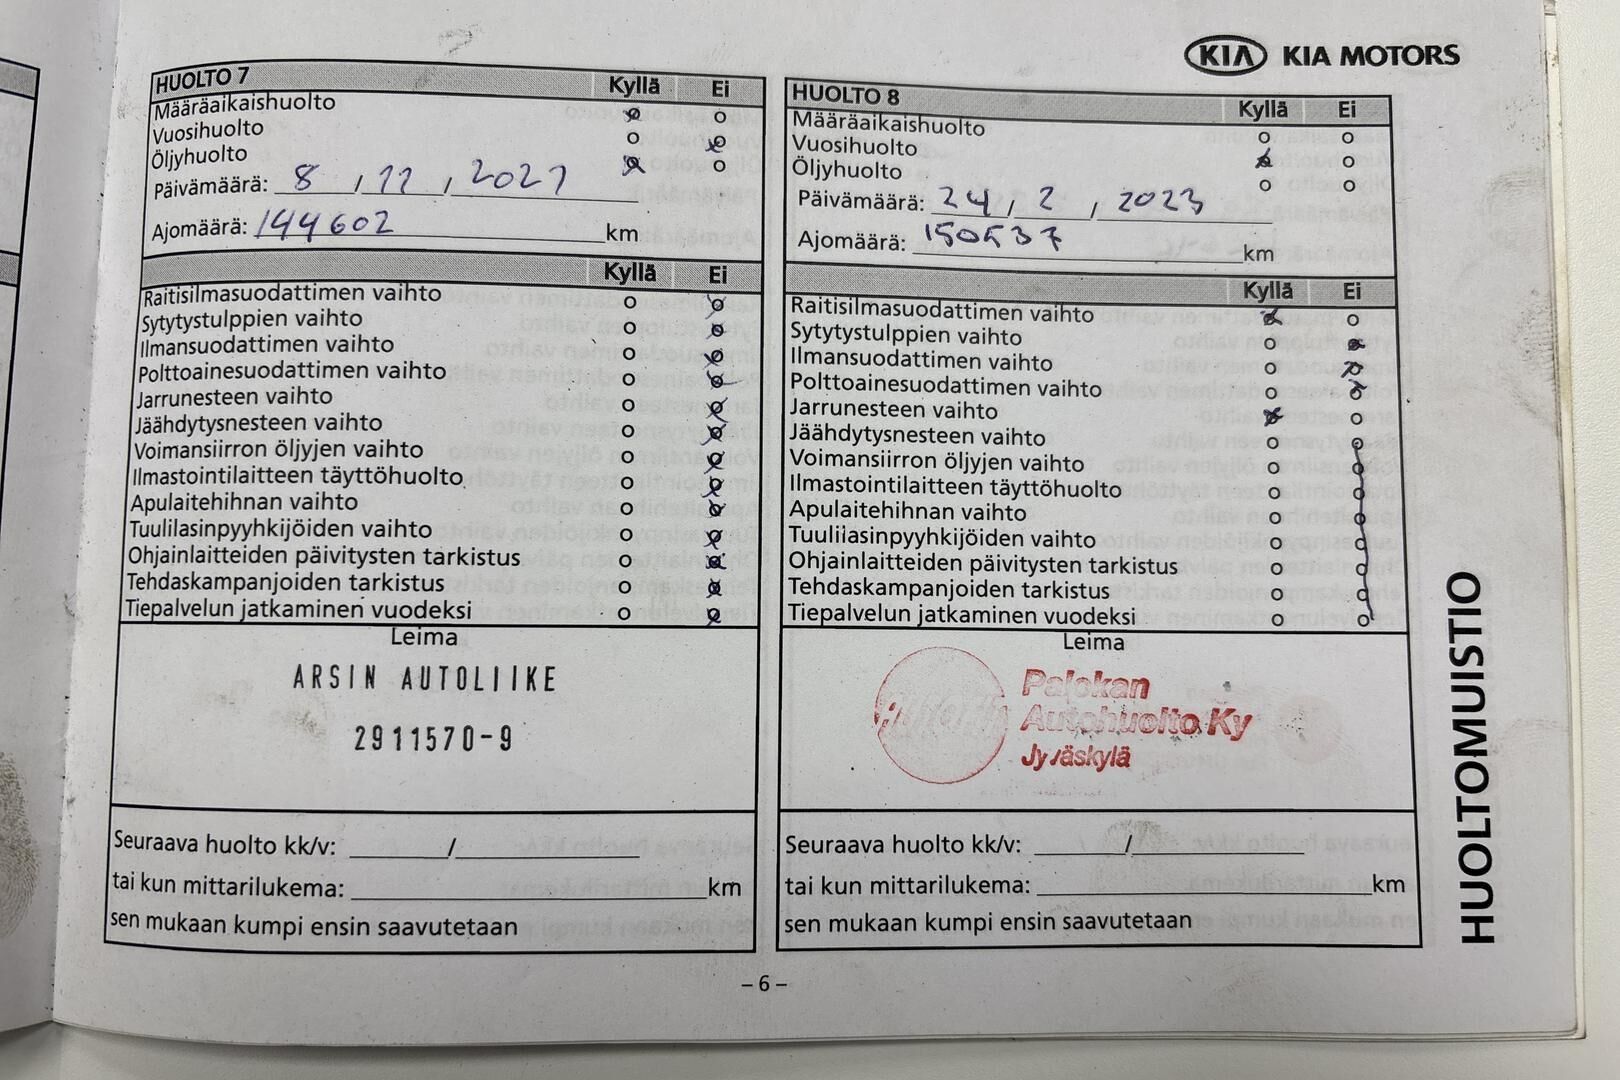 KIA KIA MOTORS
HUOLTO 7 Kyllä Ei
Määräaikaishuolto
Vuosihuolto
Öljyhuolto
Päivämäärä: 8 / 11 / 2021
Ajomäärä: 144602 km
Kyllä Ei
Raitisilmasuodattimen vaihto
Sytytystulppien vaihto
Ilmansuodattimen vaihto
Polttoainesuodattimen vaihto
Jarrunesteen vaihto
Jäähdytysnesteen vaihto
Voimansiirron öljyjen vaihto
Ilmastointilaitteen täyttöhuolto
Apulaitehihnan vaihto
Tuulilasinpyyhkijöiden vaihto
Ohjainlaitteiden päivitysten tarkistus
Tehdaskampanjoiden tarkistus
Tiepalvelun jatkaminen vuodeksi
Leima
ARSIN AUTOLIIKE
2911570-9
Seuraava huolto kk/v: /
tai kun mittarilukema: km
sen mukaan kumpi ensin saavutetaan
HUOLTO 8 Kyllä Ei
Määräaikaishuolto
Vuosihuolto
Öljyhuolto
Päivämäärä: 24 / 2 / 2023
Ajomäärä: 150537 km
Kyllä Ei
Raitisilmasuodattimen vaihto
Sytytystulppien vaihto
Ilmansuodattimen vaihto
Polttoainesuodattimen vaihto
Jarrunesteen vaihto
Jäähdytysnesteen vaihto
Voimansiirron öljyjen vaihto
Ilmastointilaitteen täyttöhuolto
Apulaitehihnan vaihto
Tuulilasinpyyhkijöiden vaihto
Ohjainlaitteiden päivitysten tarkistus
Tehdaskampanjoiden tarkistus
Tiepalvelun jatkaminen vuodeksi
Leima
Palokan
Autohuolto Ky
Jyväskylä
Seuraava huolto kk/v: /
tai kun mittarilukema: km
sen mukaan kumpi ensin saavutetaan
HUOLTOMUISTIO
– 6 –